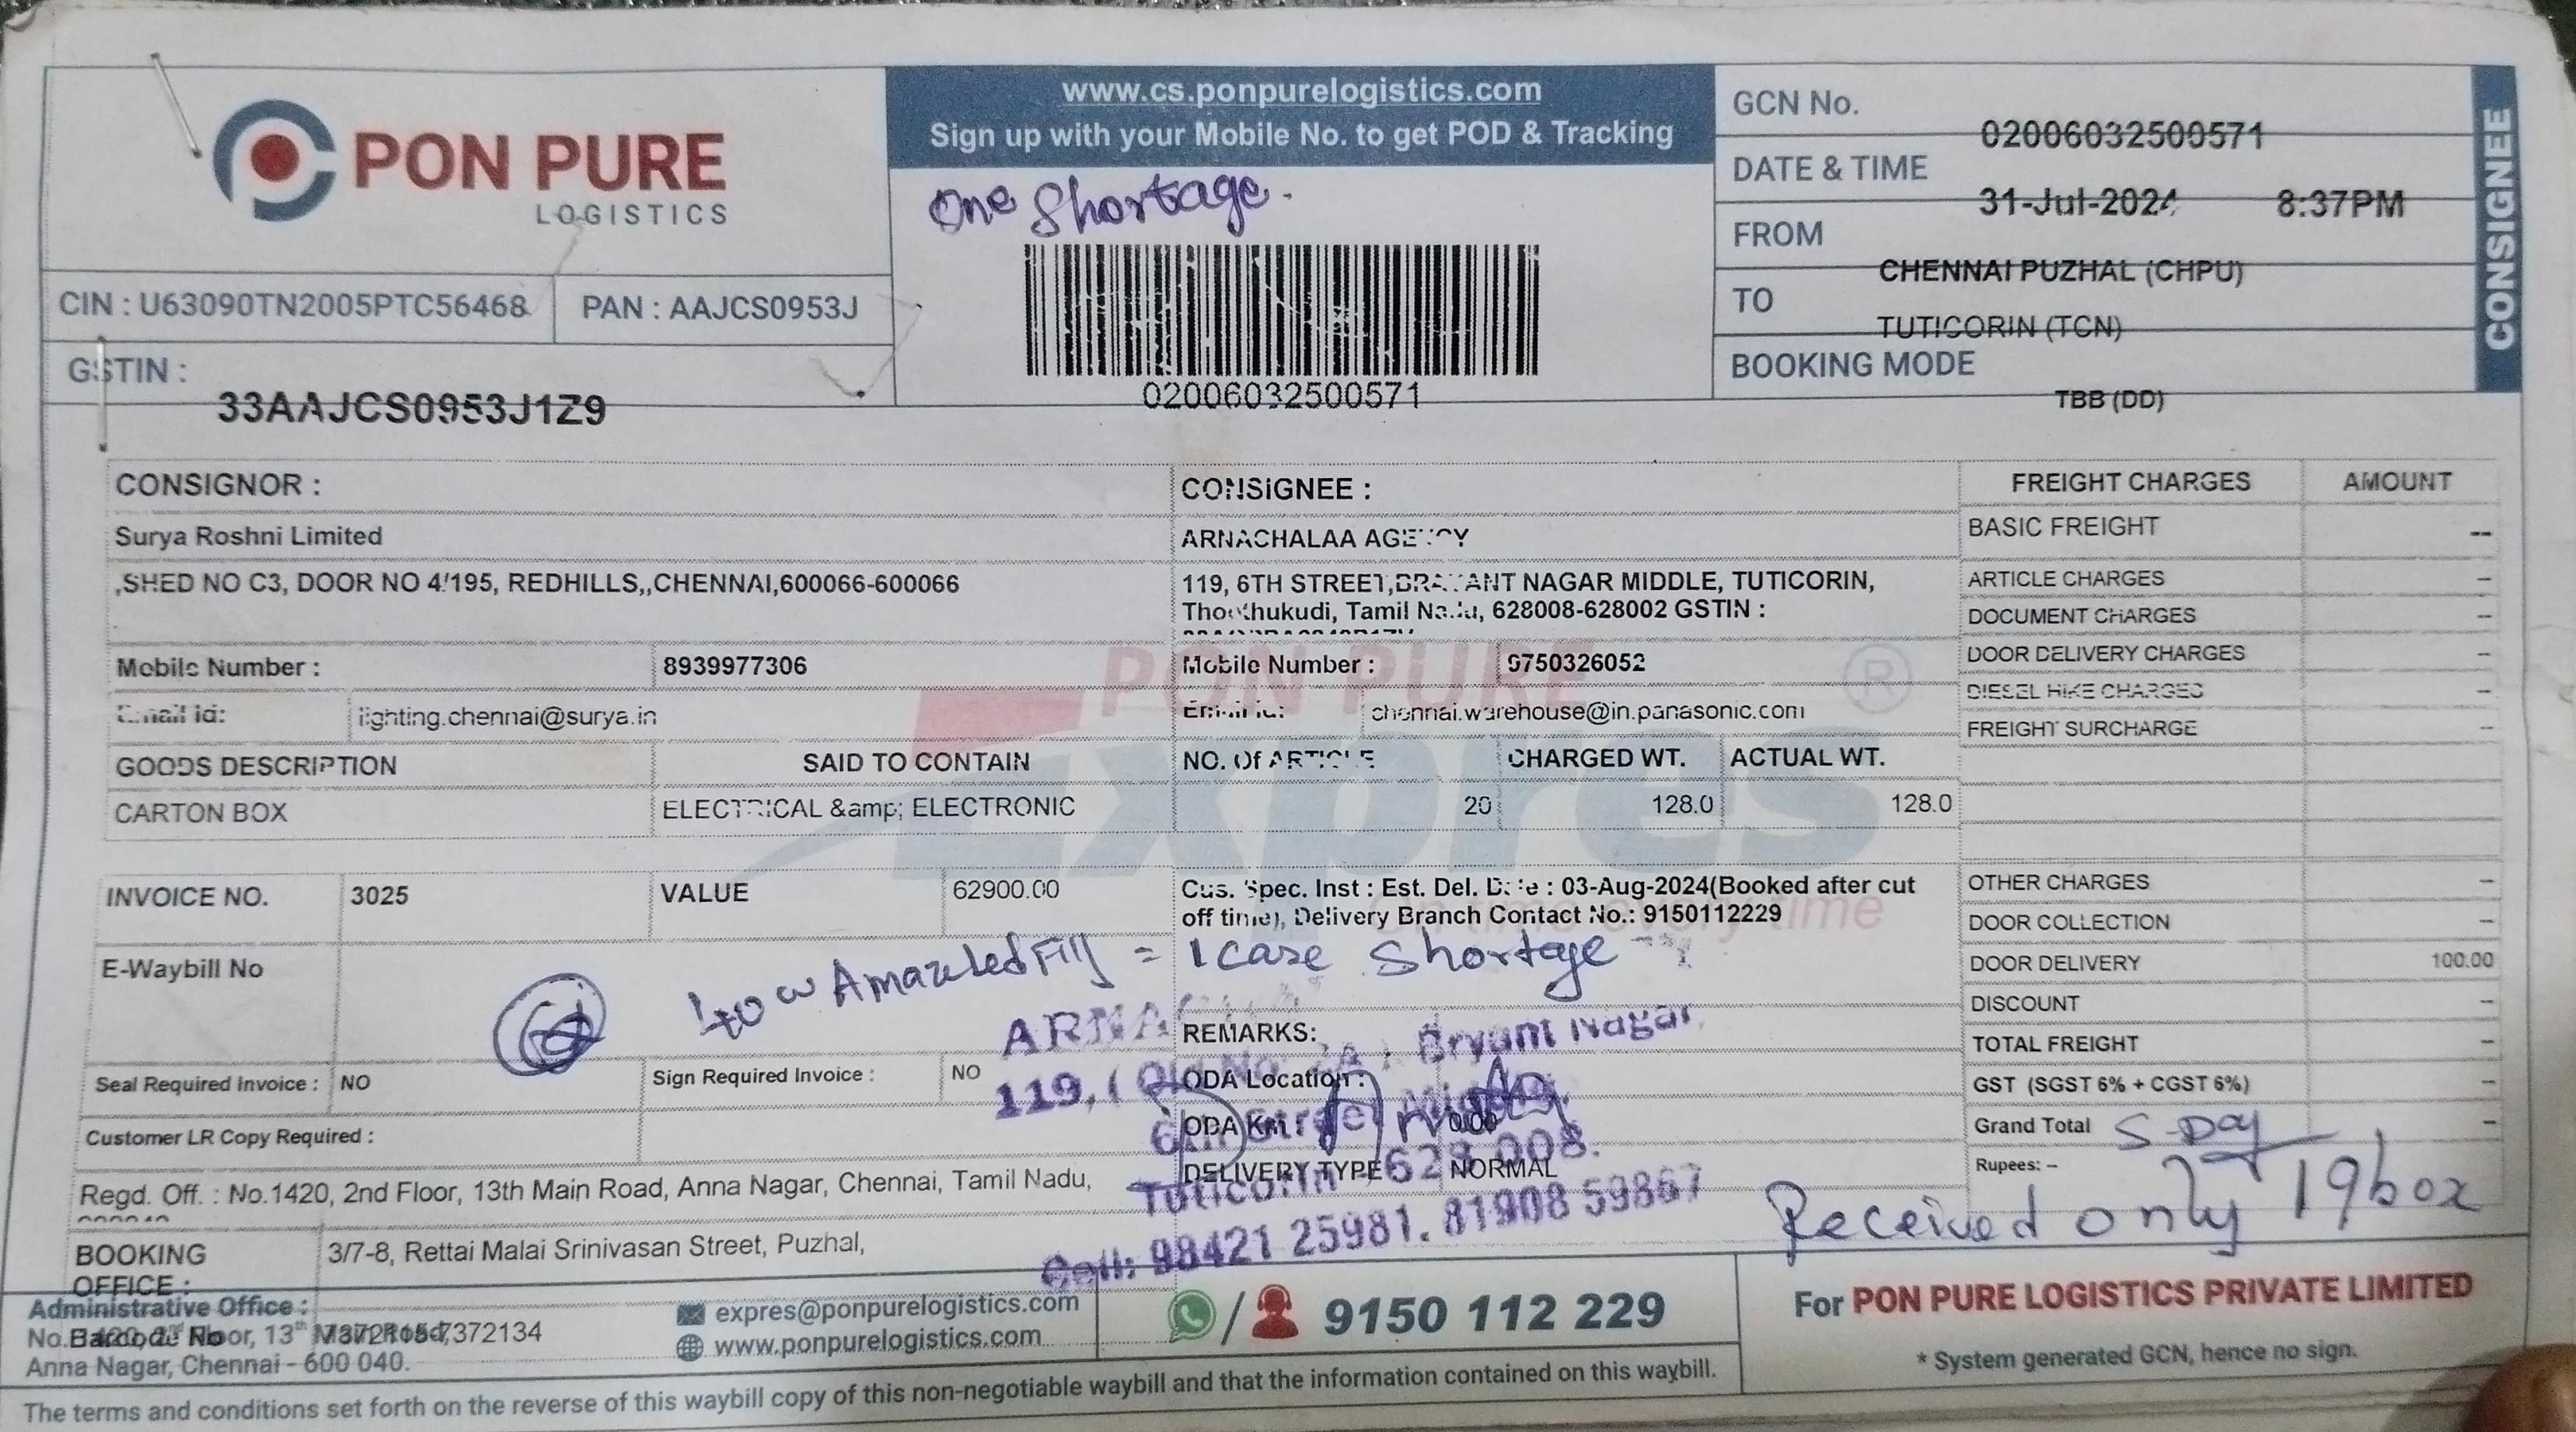 PON PURE
LOGISTICS
www.cs.ponpurelogistics.com
Sign up with your Mobile No. to get POD & Tracking
One Shortage.
02006032500571
GCN No. 02006032500571
DATE & TIME 31-Jul-2024 8:37PM
FROM CHENNAI PUZHAL (CHPU)
TO TUTICORIN (TCN)
BOOKING MODE TBB (DD)
CONSIGNEE
CIN : U63090TN2005PTC56468 PAN : AAJCS0953J
GSTIN :
33AAJCS0953J1Z9
CONSIGNOR :
Surya Roshni Limited
,SHED NO C3, DOOR NO 4/195, REDHILLS,,CHENNAI,600066-600066
Mobile Number : 8939977306
Email id: lighting.chennai@surya.in
CONSIGNEE :
ARNACHALAA AGENCY
119, 6TH STREET,BRAYANT NAGAR MIDDLE, TUTICORIN,
Thoothukudi, Tamil Nadu, 628008-628002 GSTIN :
Mobile Number : 9750326052
Email id: chennai.warehouse@in.panasonic.com
GOODS DESCRIPTION SAID TO CONTAIN NO. Of ARTICLE CHARGED WT. ACTUAL WT.
CARTON BOX ELECTRICAL &amp; ELECTRONIC 20 128.0 128.0
FREIGHT CHARGES AMOUNT
BASIC FREIGHT --
ARTICLE CHARGES --
DOCUMENT CHARGES --
DOOR DELIVERY CHARGES --
DIESEL HIKE CHARGES --
FREIGHT SURCHARGE --
OTHER CHARGES --
DOOR COLLECTION --
DOOR DELIVERY 100.00
DISCOUNT --
TOTAL FREIGHT --
GST (SGST 6% + CGST 6%) --
Grand Total --
Rupees: --
INVOICE NO. 3025 VALUE 62900.00
Cus. Spec. Inst : Est. Del. Date : 03-Aug-2024(Booked after cut
off time), Delivery Branch Contact No.: 9150112229
E-Waybill No
40w = 1 case Shortage
REMARKS:
Seal Required Invoice : NO Sign Required Invoice : NO
ODA Location :
ODA Km 0.00
Customer LR Copy Required :
DELIVERY TYPE NORMAL
119, Bryant Nagar,
Tuticorin 628 008.
Cell: 98421 25981. 81908 59867
Received only 19box
Regd. Off. : No.1420, 2nd Floor, 13th Main Road, Anna Nagar, Chennai, Tamil Nadu,
BOOKING
OFFICE :
3/7-8, Rettai Malai Srinivasan Street, Puzhal,
Administrative Office :
Barcode No
Anna Nagar, Chennai - 600 040.
expres@ponpurelogistics.com
www.ponpurelogistics.com
9150 112 229
For PON PURE LOGISTICS PRIVATE LIMITED
* System generated GCN, hence no sign.
The terms and conditions set forth on the reverse of this waybill copy of this non-negotiable waybill and that the information contained on this waybill.
PON PURE
Expres